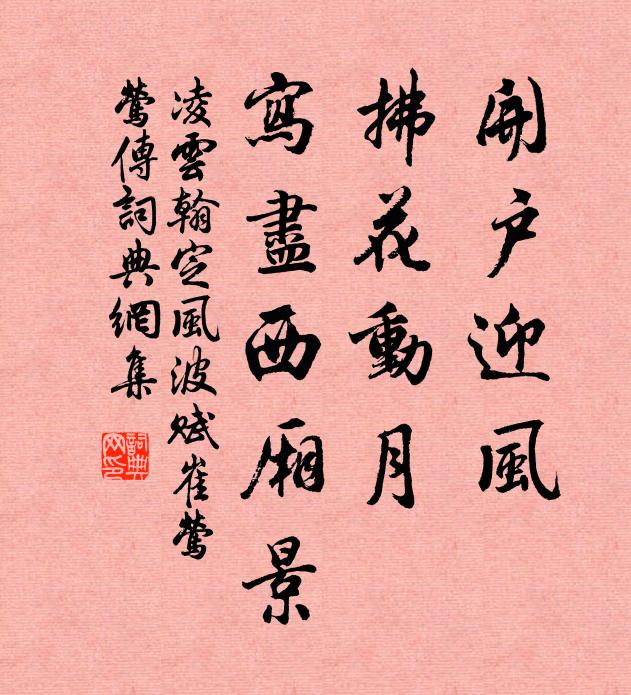 開戶迎風
拂花動月
寫盡西廂景
凌雲翰定風波賦崔鶯
鶯傳詞典網集
詞典
网印